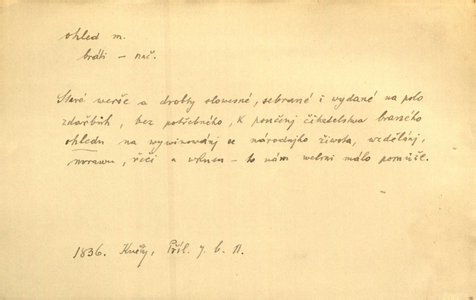 ohled m.
bráti – nač.
Stará werše a drobty slowesné, sebrané i wydané na polo
zdařbůh, bez potřebného, k poněkud čtenářstwa braného
ohledu na wywinowánj se národnjho žiwota, wzdělánj,
mrawu, řeči a wkusu – to nám welmi málo pomůže.
1836. Kwěty, Příl. 7. b. 11.